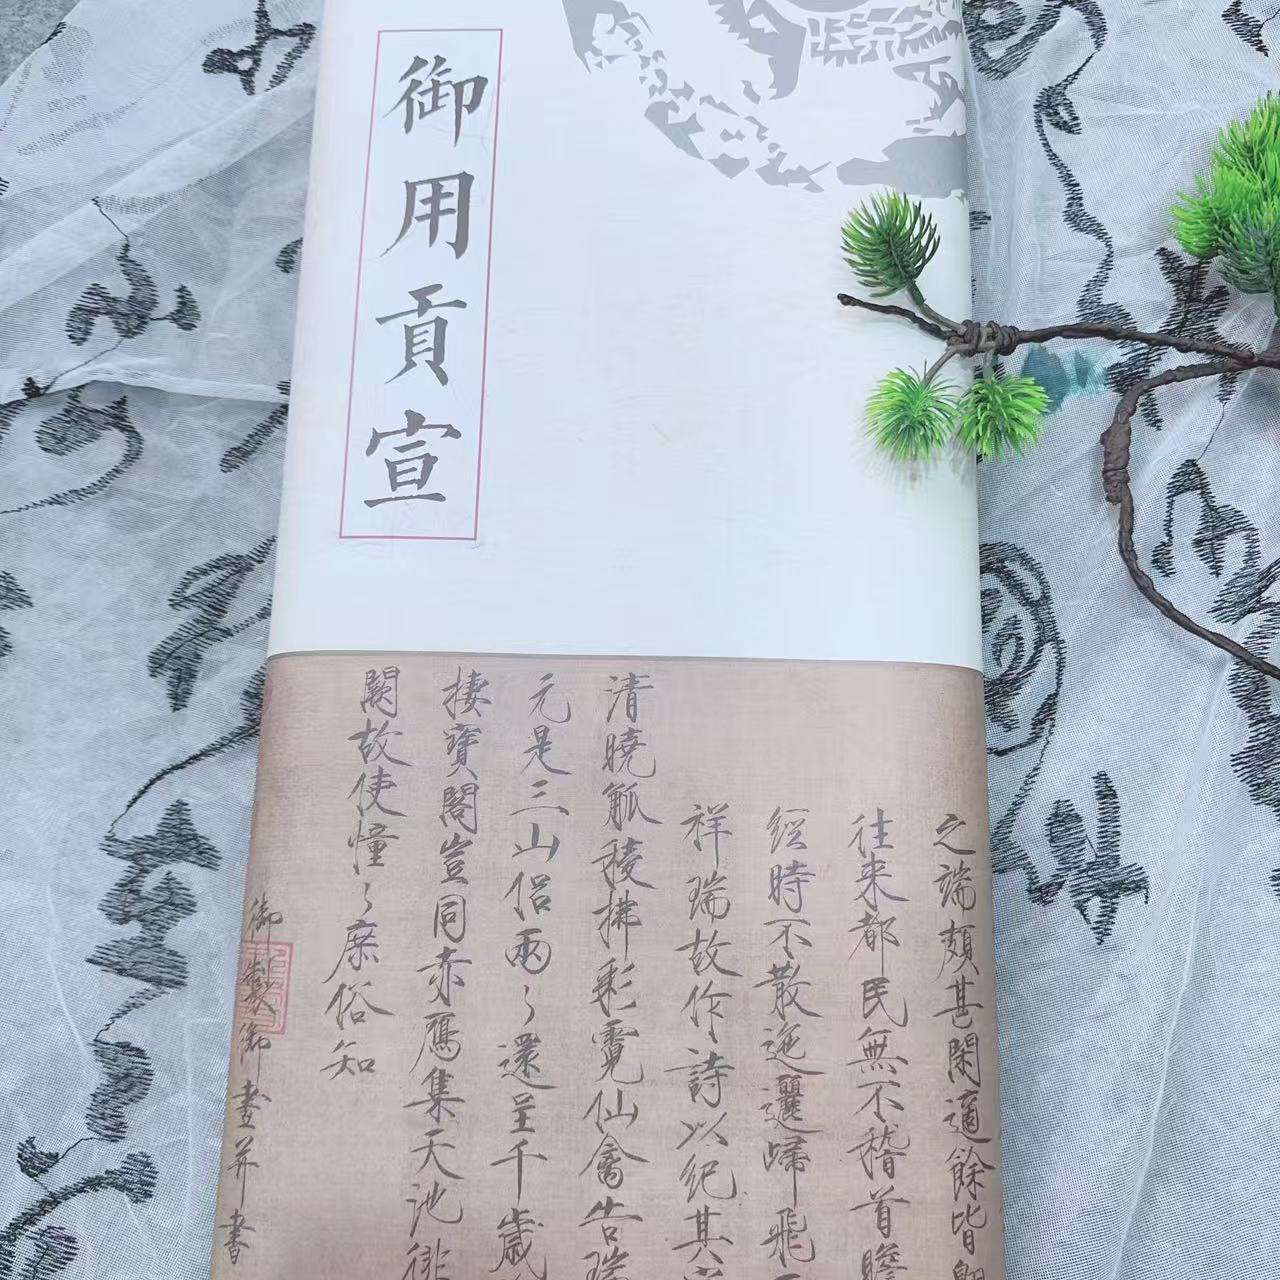 御用貢宣
之端頗甚閑適餘皆
往来都民無不稽首瞻
經時不散迤邐歸飛
祥瑞故作詩以紀其
清曉觚稜拂彩霓仙禽告瑞
元是三山侶兩〻還呈千歳
棲寳閣豈同赤鴈集天池徘
闕故使憧〻庶俗知
御製御畫并書